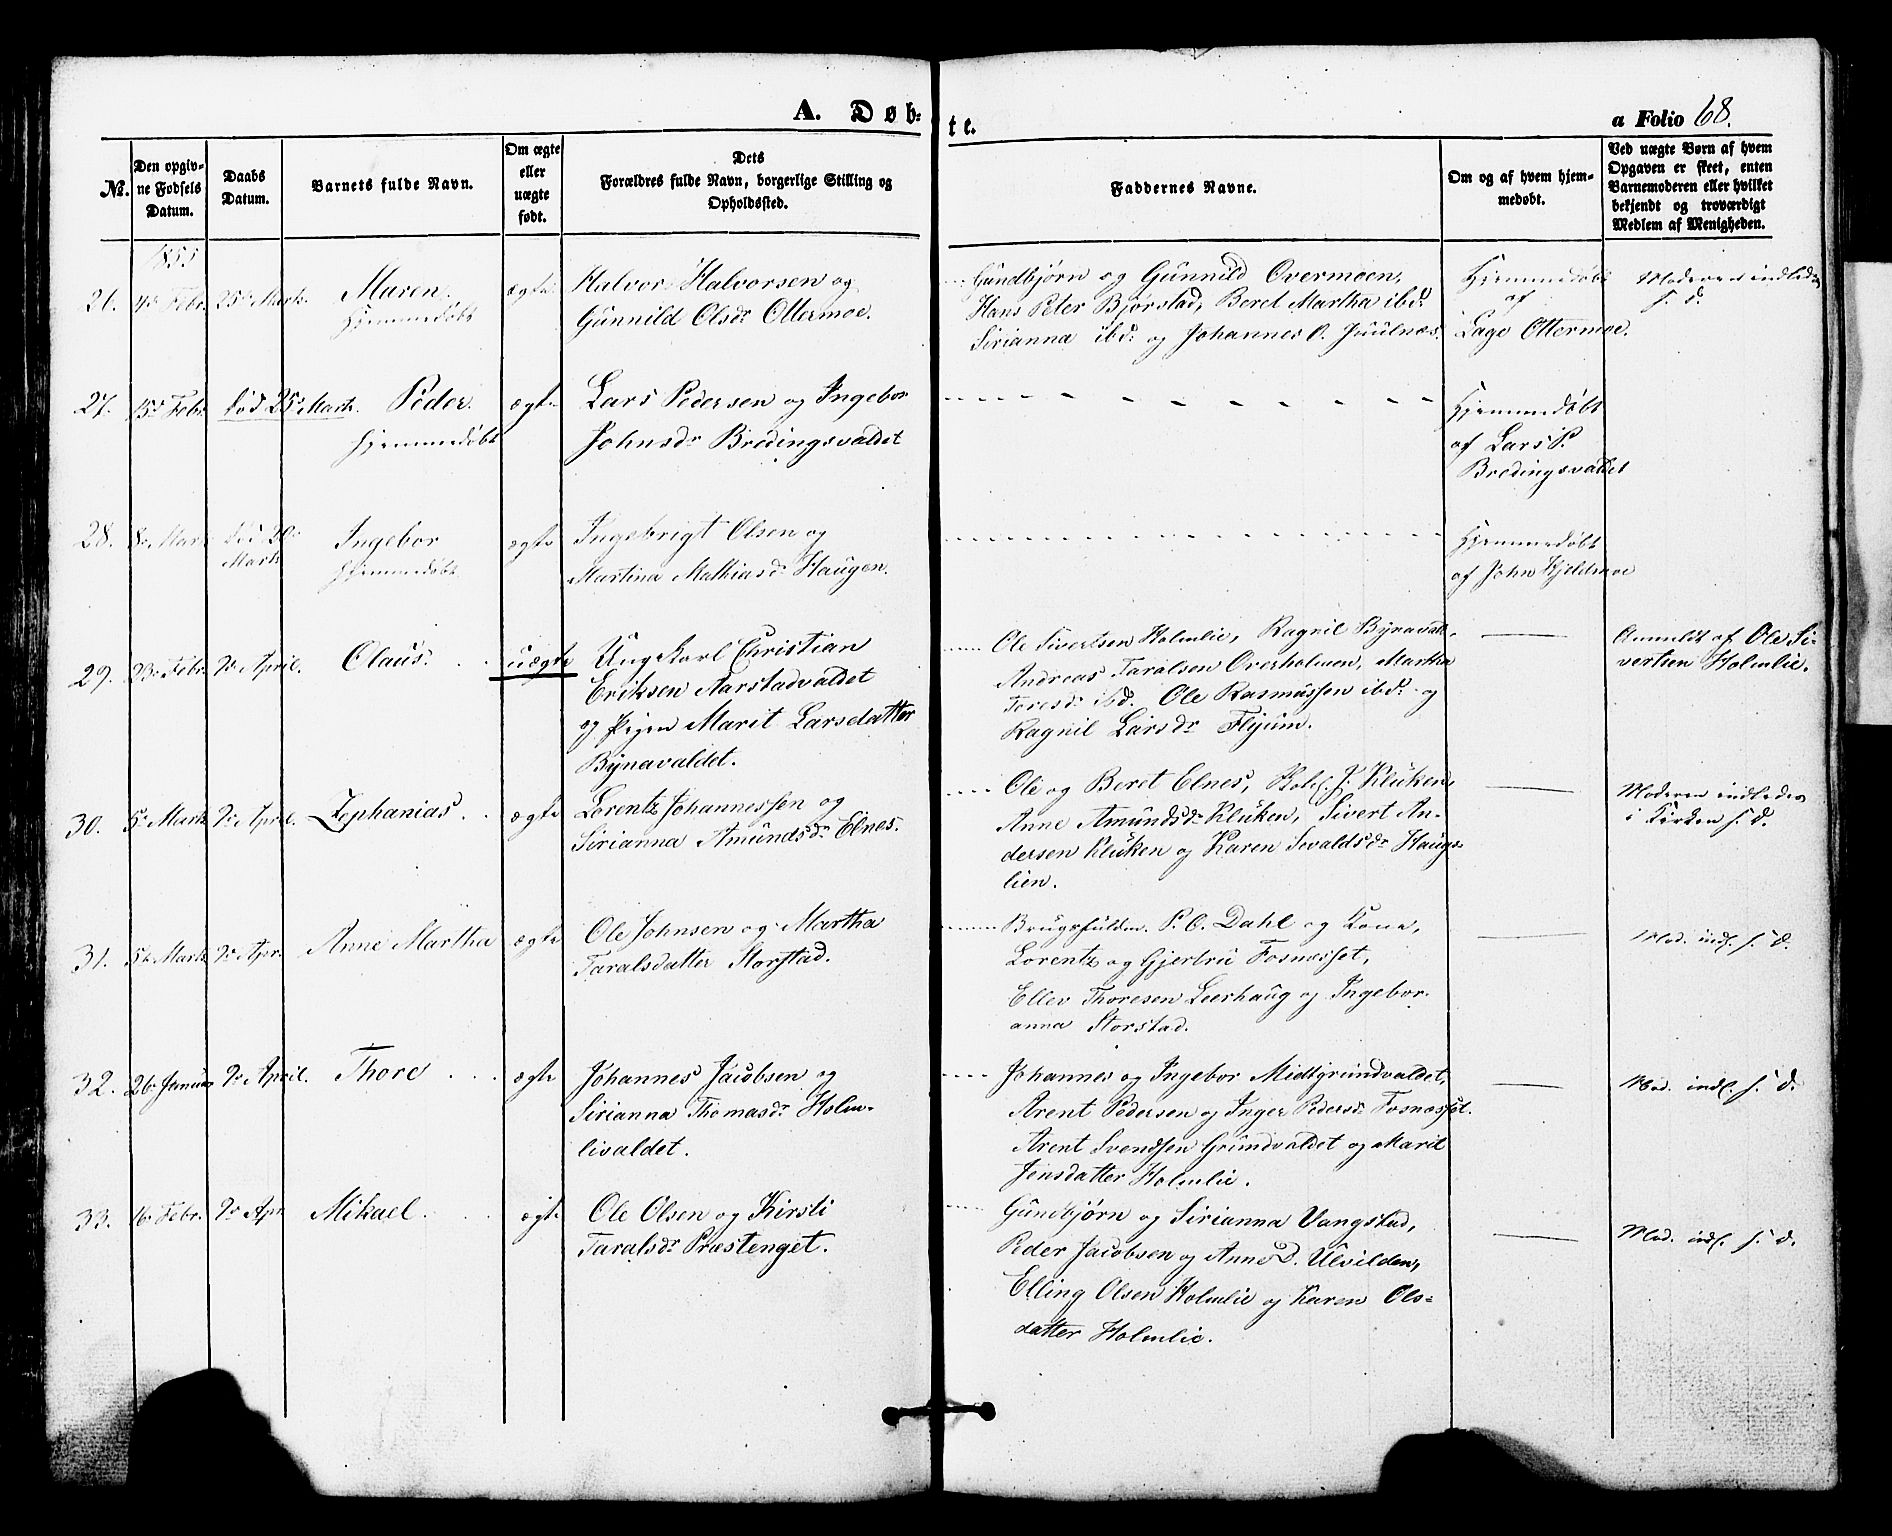 A. Døb-
te.
a Folio 68.
No.
Den opgiv-
ne Fødsels
Datum.
Daabs
Datum.
Barnets fulde Navn.
Om ægte
eller
uægte
født.
Dets
Forældres fulde Navn, borgerlige Stilling og
Opholdssted.
Faddernes Navne.
Om og af hvem hjem-
medøbt.
Ved uægte Børn af hvem
Opgaven er skeet, enten
Barnemoderen eller hvilket
bekjendt og troværdigt
Medlem af Menigheden.
1855
26. 4de Febr. 25de Marts. Maren.
Hjemmedøbt
ægte
Halvor Halvorsen og
Gunnild Olsdr Ottermoe.
Gundbjørn og Gunnild Overmoen,
Hans Peter Bjørstad, Beret Martha ibd:
Sirianna ibd: og Johannes O. Juulnæs.
Hjemmedøbt
af
Lage Ottermoe.
Moderen indledes
s. d.
27. 15de Febr. død 25de Marts. Peder.
Hjemmedøbt
ægte
Lars Pedersen og Ingebor
Johnsdr Bredingsvaldet
Hjemmedøbt
af Lars P.
Bredingsvaldet
28. 8de Marts død 20de
Marts
Ingebor
Hjemmedøbt
ægte
Ingebrigt Olsen og
Martina Mathiasdr Haugen.
Hjemmedøbt
af John Kjeldmoe
29. 23de Febr. 9de April. Olaus. uægte
Ungkarl Christian
Eriksen Aarstadvaldet
og Pigen Marit Larsdatter
Bynavaldet.
Ole Sivertsen Holmlie, Ragnil Bynavald,
Andreas Taralsen Overholmen, Martha
Toresdr ibd. Ole Rasmussen ibd: og
Ragnil Larsdr Flyum.
Anmeldt af Ole Si-
vertsen Holmlie.
30. 5te Marts 9de April. Zephanias. ægte
Lorentz Johannessen og
Sirianna Amundsdr Elnes.
Ole og Beret Elnes, J. Kluken,
Anne Amundsdr Kluken, Sivert An-
dersen Kluken og Karen Sevaldsdr Haugs-
lien.
Moderen indledes
i Kirken s. d.
31. 5te Marts 9de Apr. Anne Martha ægte
Ole Johnsen og Martha
Taralsdatter Storstad.
Brugsfuldm. P. O. Dahl og Kone,
Lorentz og Gjertru Fosnæsset,
Ellev Thoresen Leerhaug og Ingebor-
anna Storstad.
Mod. indl. s. d.
32. 26de Januar 9de April. Thore ægte
Johannes Jacobsen og
Sirianna Thomasdr Holm-
livaldet.
Johannes og Ingebor Midtgrundvaldet,
Arent Pedersen og Inger Pedersdr Fosnæsset.
Arent Svendsen Grundvaldet og Marit
Jensdatter Holmlie.
Mod. indl. s. d.
33. 16de Febr. 9de Apr. Mikael. ægte
Ole Olsen og Kirsti
Taralsdr Præstenget.
Gundbjørn og Sirianna Vangstad,
Peder Jacobsen og Anne D. Ulvilden,
Elling Olsen Holmlie og Karen Ols-
datter Holmlie.
Mod. indl. s. d.